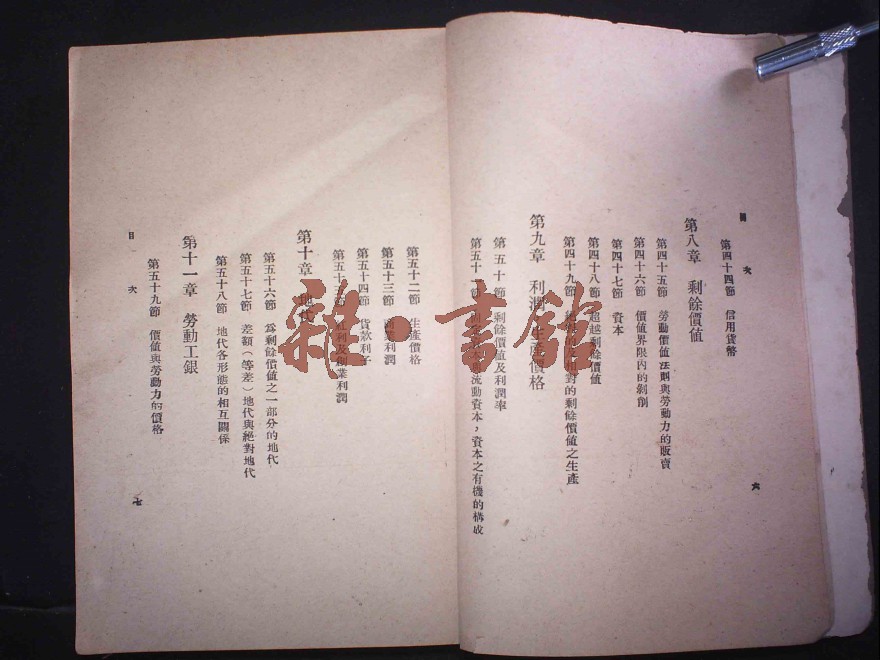 目
次
六
第四十四節 信用貨幣
第八章 剩餘價値
第四十五節 勞動價値法則與勞動力的販賣
第四十六節 價値界限內的剝削
第四十七節 資本
第四十八節 超越剩餘價値
第四十九節 對的剩餘價値之生產
第九章 利潤 生產價格
第五十節 剩餘價値及利潤率
第五十一節 流動資本,資本之有機的構成
第五十二節 生產價格
第五十三節 商業利潤
第五十四節 貨款利子
第五十五節 紅利及創業利潤
第十章 地代
第五十六節 爲剩餘價値之一部分的地代
第五十七節 差額(等差)地代與絕對地代
第五十八節 地代各形態的相互關係
第十一章 勞動工銀
第五十九節 價値與勞動力的價格
目
次
七
雜·書館